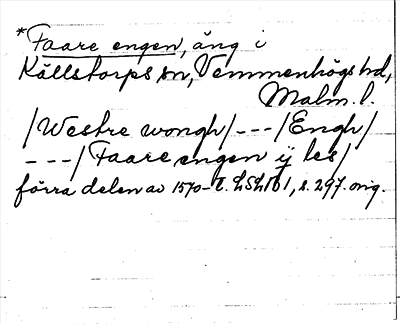 *Faare engen, äng i
Källstorps sn, Vemmenhögs hd,
Malm. l.
/Westre wongh/ --- /Engh/
--- / Faare engen ij les/
förra delen av 1570-t. LSLJb 1, s. 297. orig.